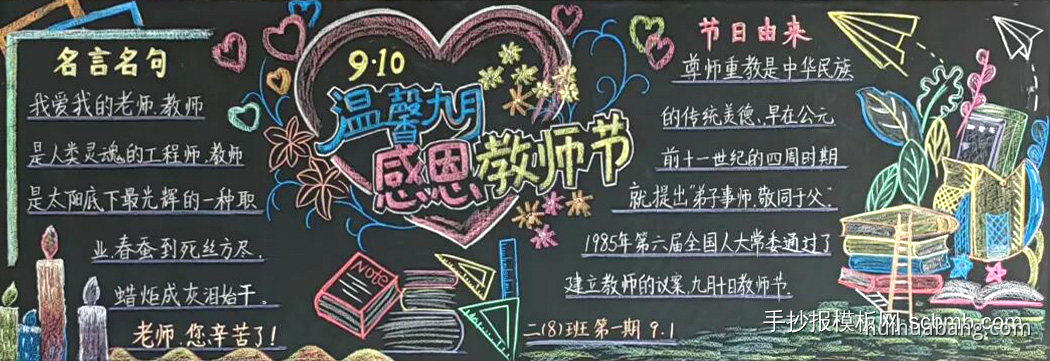 名言名句
我爱我的老师.教师
是人类灵魂的工程师.教师
是太阳底下最光辉的一种职
业.春蚕到死丝方尽.
蜡炬成灰泪始干.
老师.您.辛苦了!
9·10
温馨九月
感恩教师节
Note
二(8)班 第一期 9.1
节日由来
尊师重教是中华民族
的传统美德、早在公元
前十一世纪的四周时期
就提出"弟子事师,敬同于父".
1985年第六届全国人大常委通过了
建立教师的议案.九月十日教师节.
手抄报模板网